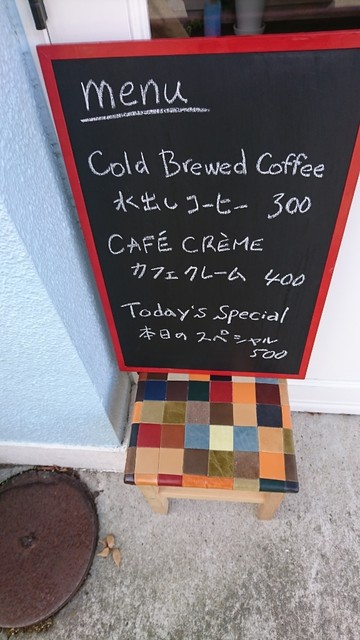 menu
Cold Brewed Coffee
水出しコーヒー 300
CAFÉ CRÈME
カフェクレーム 400
Today's Special
本日のスペシャル
500